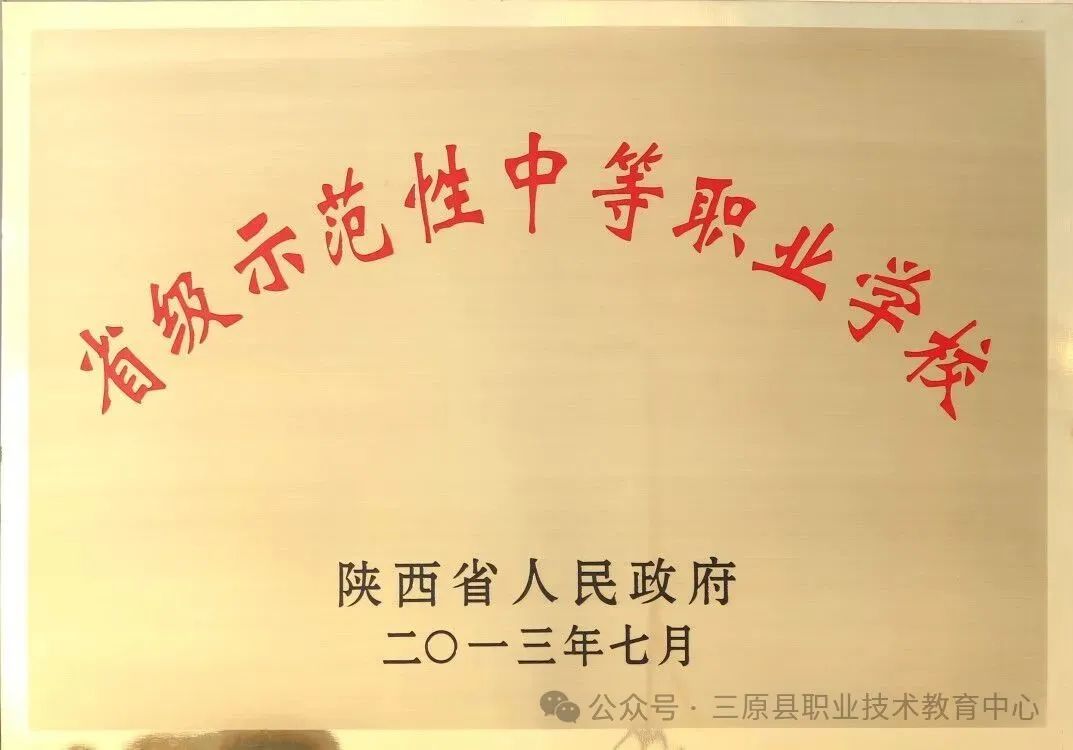 省级示范性中等职业学校
陕西省人民政府
二〇一三年七月
公众号·三原县职业技术教育中心